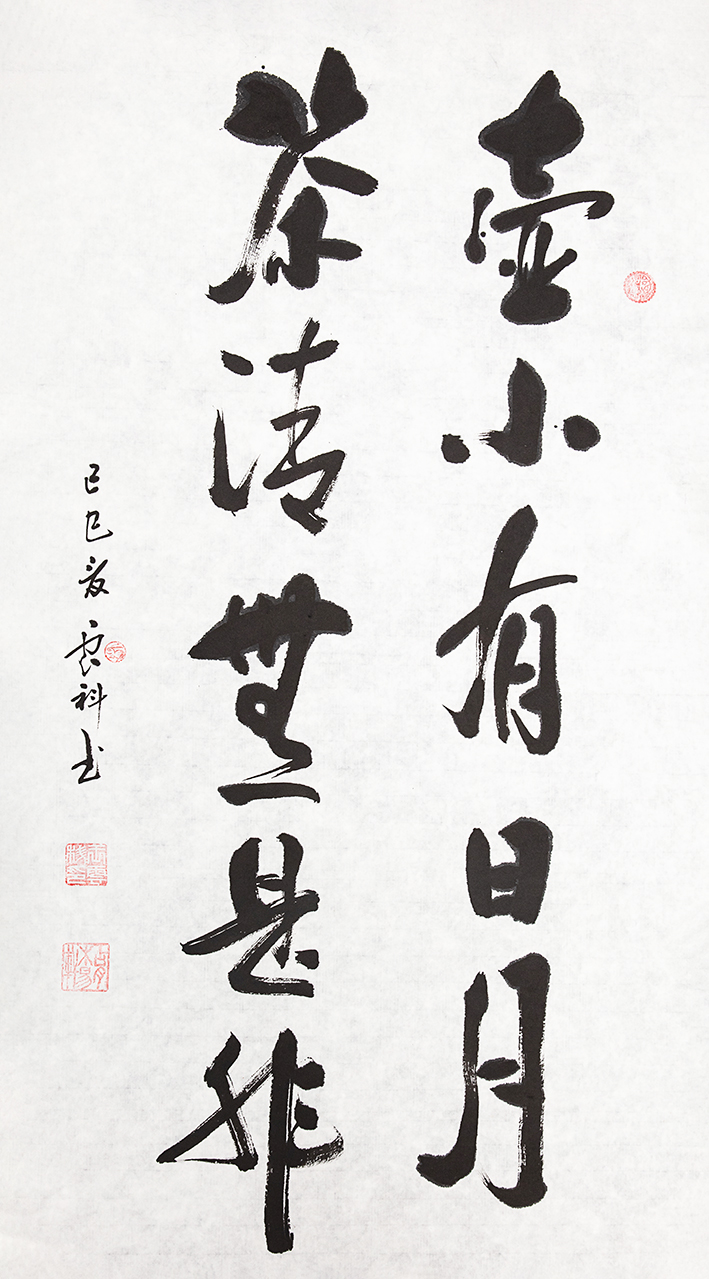 壺小有日月
茶清無是非
己巳夏雲科书